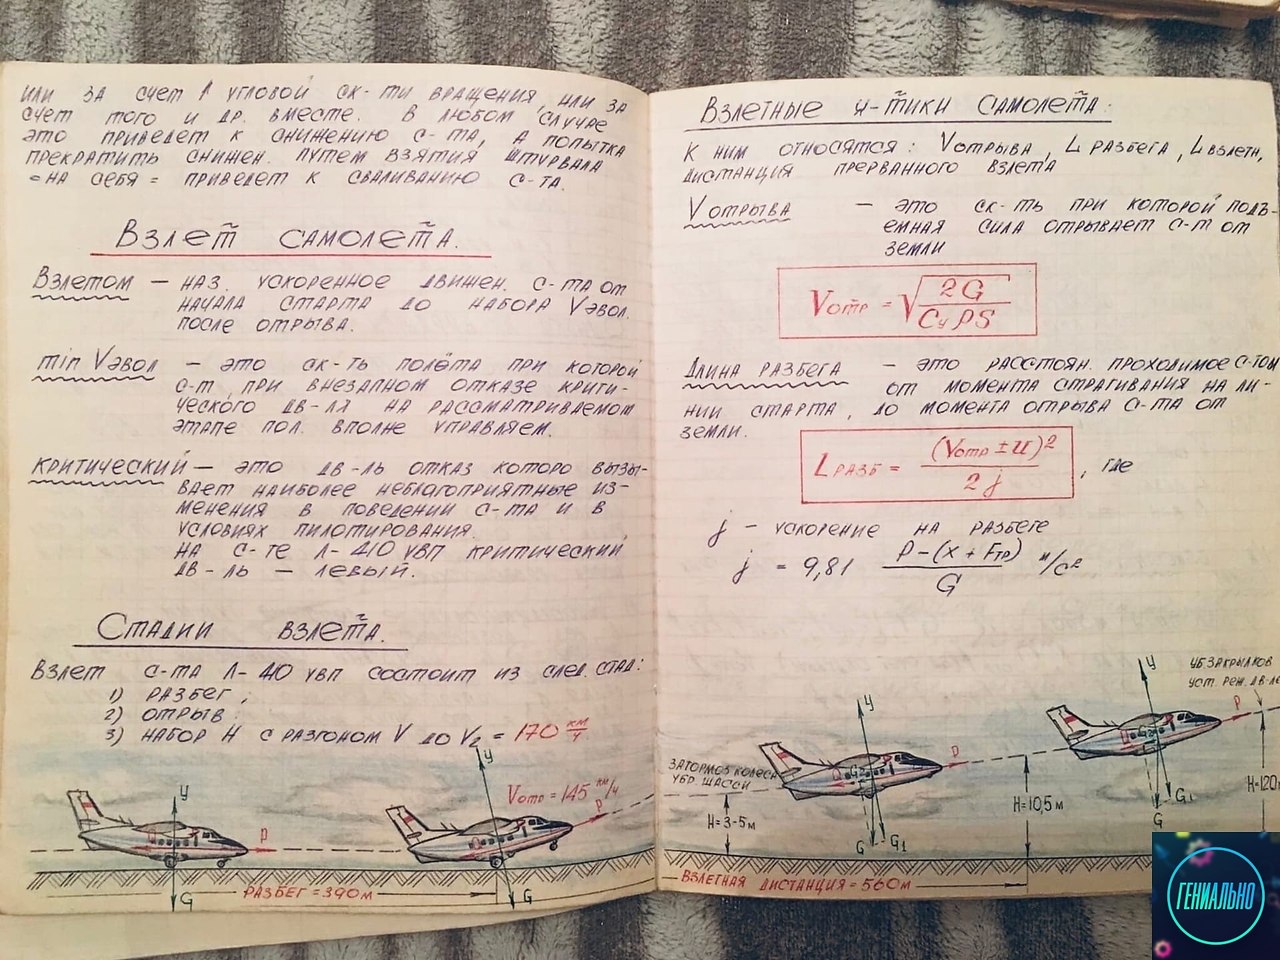 или за счет ↑ угловой ск-ти вращения, или за
счет того и др. вместе. в любом случае
это приведет к снижению с-та, а попытка
прекратить снижен. путем взятия штурвала
=на себя= приведет к сваливанию с-та.
Взлет самолета.
Взлетом — наз. ускоренное движен. с-та от
начала старта до набора Vэвол.
после отрыва.
min Vэвол — это ск-ть полёта при которой
с-т при внезапном отказе крити-
ческого дв-ля на рассматриваемом
этапе пол. вполне управляем.
критический — это дв-ль отказ которо вызы-
вает наиболее неблагоприятные из-
менения в поведении с-та и в
условиях пилотирования.
на с-те Л-410 увп критический
дв-ль — левый.
Стадии взлета.
Взлет с-та Л-410 увп состоит из след. стад:
1) разбег;
2) отрыв:
3) набор H с разгоном V до V₂ = 170 км/ч
y
P
G
разбег = 390м
y
Vотр = 145 км/ч
P
G
Взлетные х-тики самолета:
к ним относятся: Vотрыва, L разбега, L взлетн,
дистанция прерванного взлета
V отрыва — это ск-ть при которой подъ-
емная сила отрывает с-т от
земли
Vотр = √(2G / CyρS)
Длина разбега — это расстоян. проходимое с-том
от момента страгивания на ли-
нии старта, до момента отрыва с-та от
земли.
L разб = (Vотр ± U)² / 2j, где
j — ускорение на разбеге
j = 9,81 (P-(x + Fтр)) / G м/с²
затормоз колеса
убр. шасси
H=3-5м
y
P
G
G₁
H=10,5м
взлетная дистанция = 560м
y
уб закрылков
уст. реж. дв-ле
P
G₁
G
H=120
ГЕНИАЛЬНО